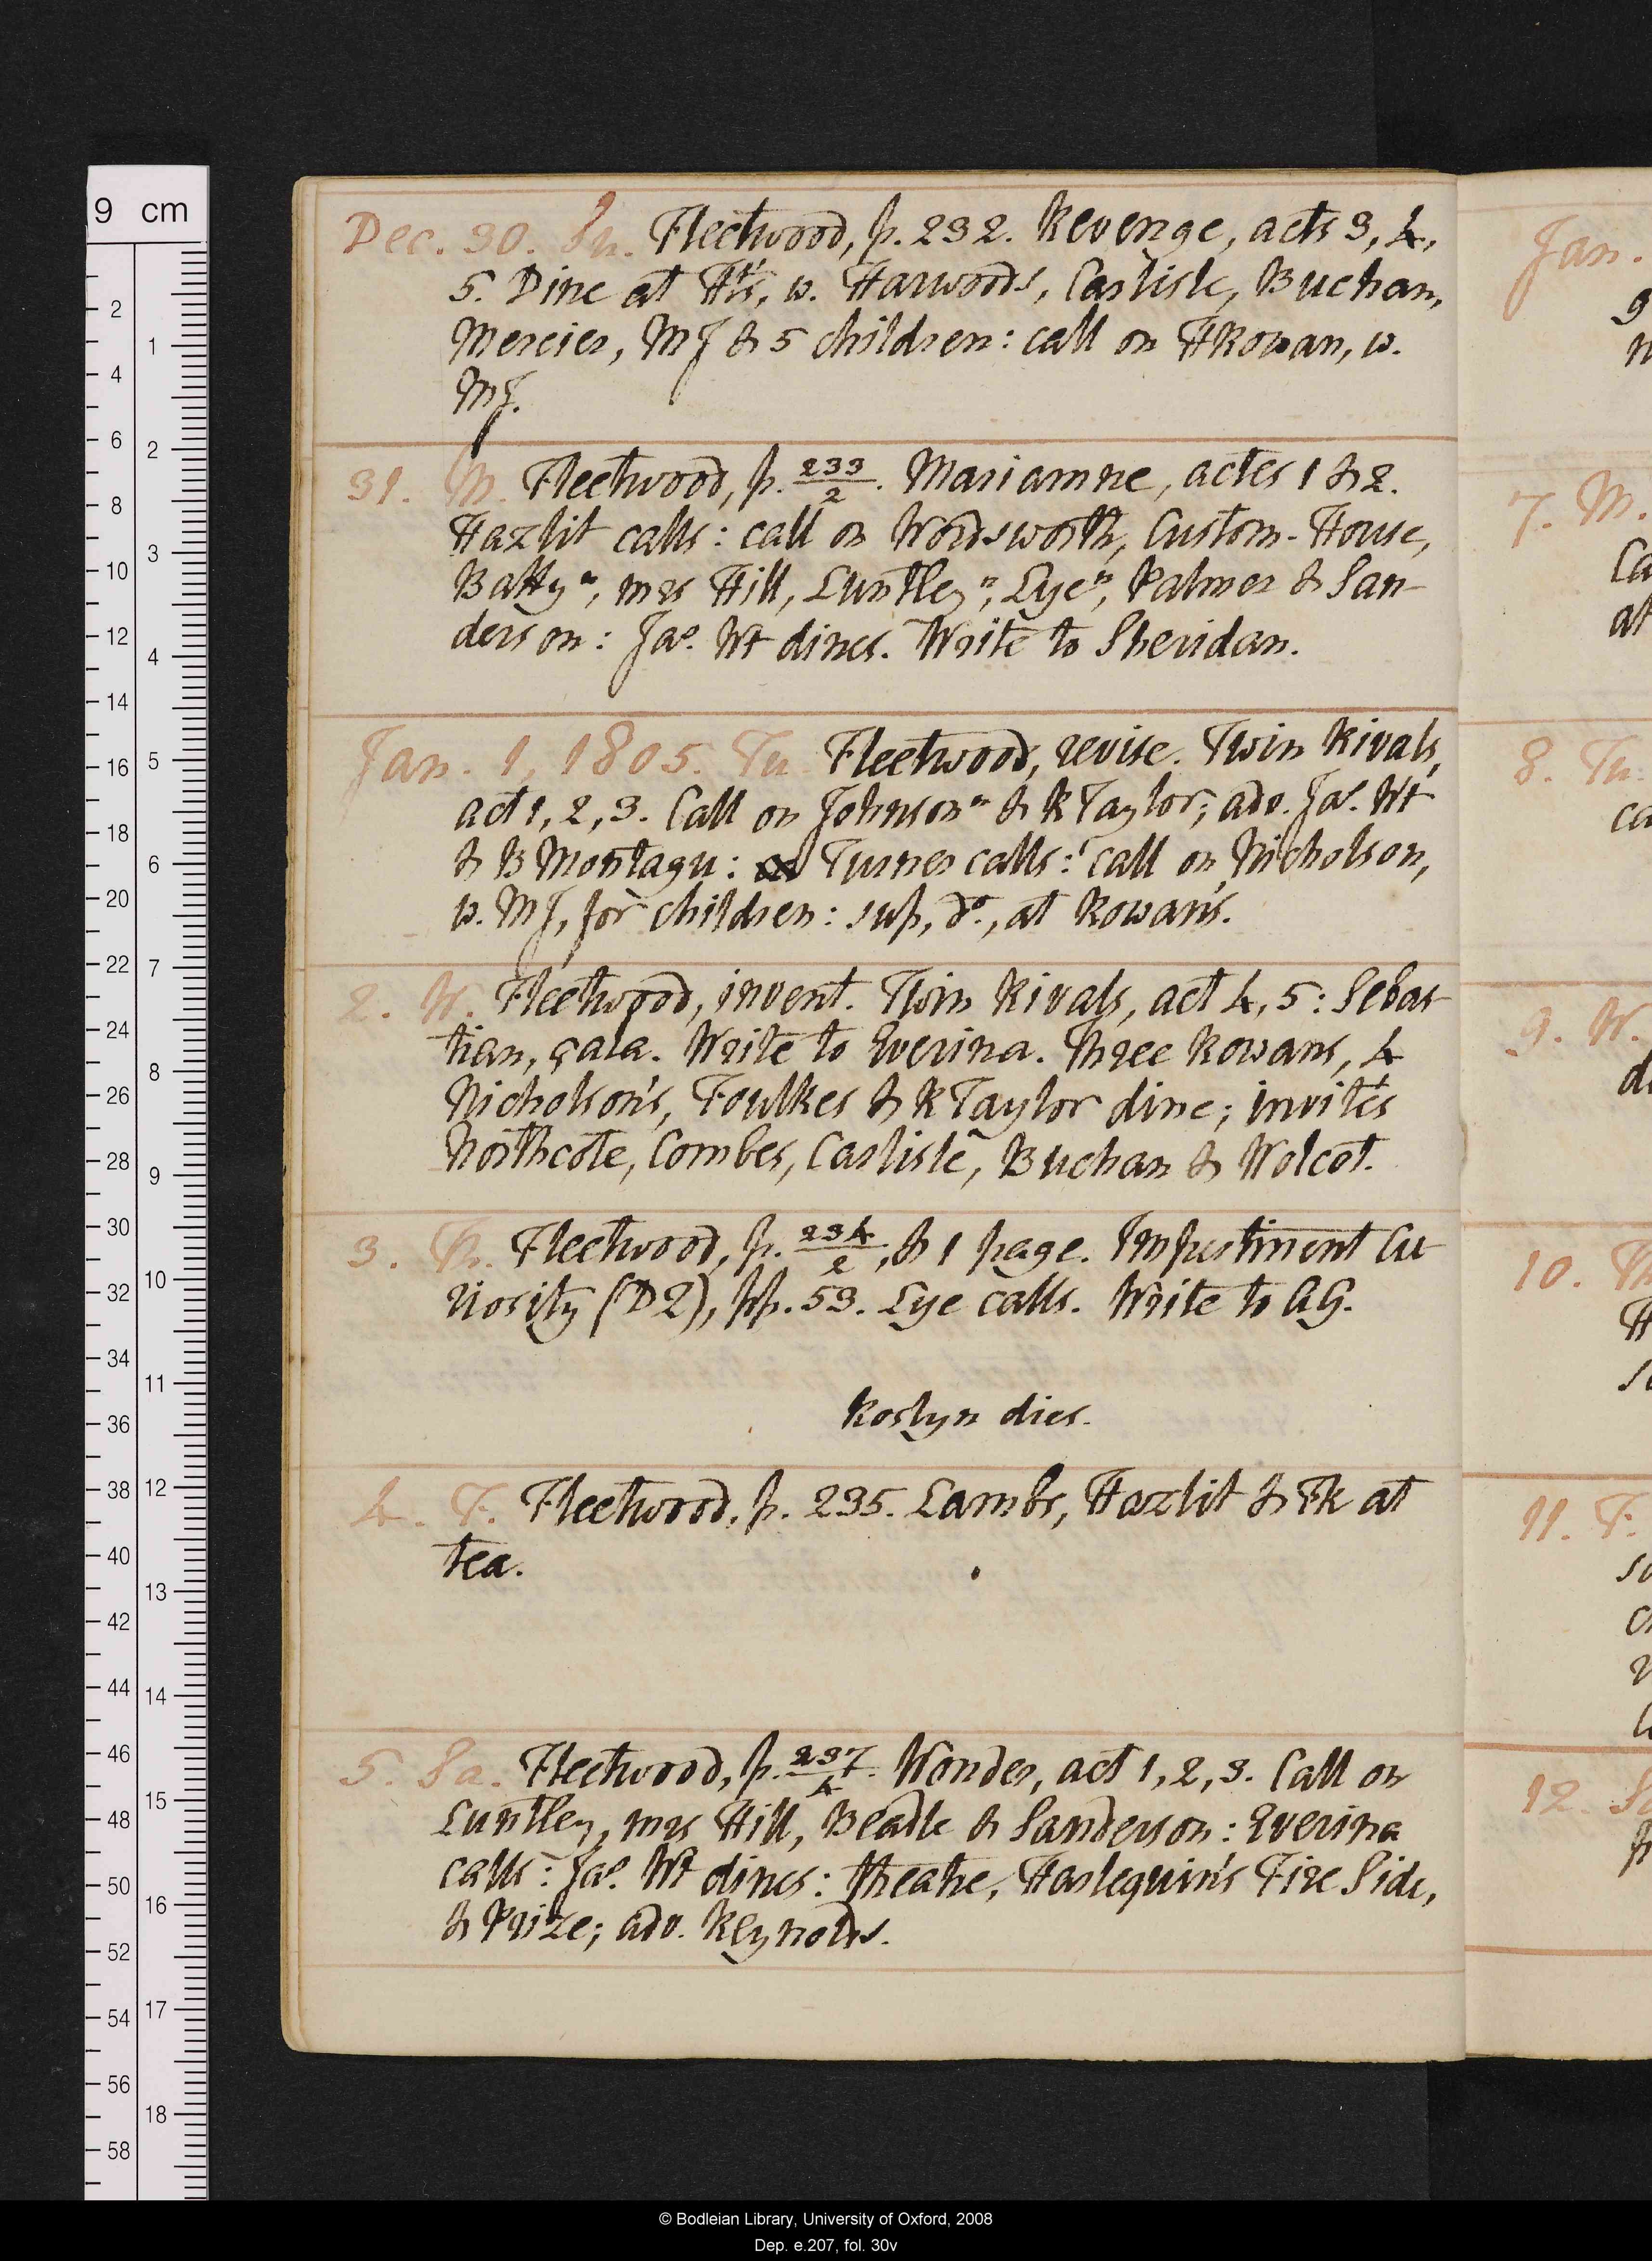 Dec. 30. Su. Fleetwood, p. 232. Revenge, acts 3, 4,
5. Dine at Ht's, w. Harwoods, Carlisle, Buchan,
Mercier, MJ & 5 children: call on HRowan, w.
MJ.
31. M. Fleetwood, p. 233/2. Mariamne, actes 1 & 2.
Hazlit calls: call on Wordsworth, Custom-House,
Battyⁿ, mrs Hill, Luntleyⁿ, Lyeⁿ, Palmer & San-
derson: Jas. Wt dines. Write to Sheridan.
Jan. 1, 1805. Tu. Fleetwood, revise. Twin Rivals,
act 1, 2, 3. Call on Johnsonⁿ & RTaylor; adv. Jas. Wt
& BMontagu: Turner calls: call on Nicholson,
w. MJ, for children: sup, do., at Rowan's.
2. W. Fleetwood, invent. Twin Rivals, act 4, 5: Sebas-
tian, çala. Write to Everina. Three Rowans, 4
Nicholson's, Foulkes & RTaylor dine; invités
Northcote, Combes, Carlisle, Buchan & Wolcot.
3. Th. Fleetwood, p. 234/2, & 1 page. Impertinent Cu-
riosity (D2), pp. 53. Lye calls. Write to AG.
Roslyn dies.
4. F. Fleetwood, p. 235. Lambs, Hazlit & Fk at
tea.
5. Sa. Fleetwood, p. 237/4. Wonder, act 1, 2, 3. Call on
Luntley, mrs Hill, Beadle & Sanderson: Everina
calls: Jas. Wt dines: theatre, Harlequin's Fire Side,
& Prize; adv. Reynolds.
Jan.
7. M.
Ca
at
8. Tu.
ca
9. W.
di
10. Th
H
so
11. F.
so
12. Sa
9 cm
2
4
6
8
10
12
14
16
18
20
22
24
26
28
30
32
34
36
38
40
42
44
46
48
50
52
54
56
58
1
2
3
4
5
6
7
8
9
10
11
12
13
14
15
16
17
18
© Bodleian Library, University of Oxford, 2008
Dep. e.207, fol. 30v